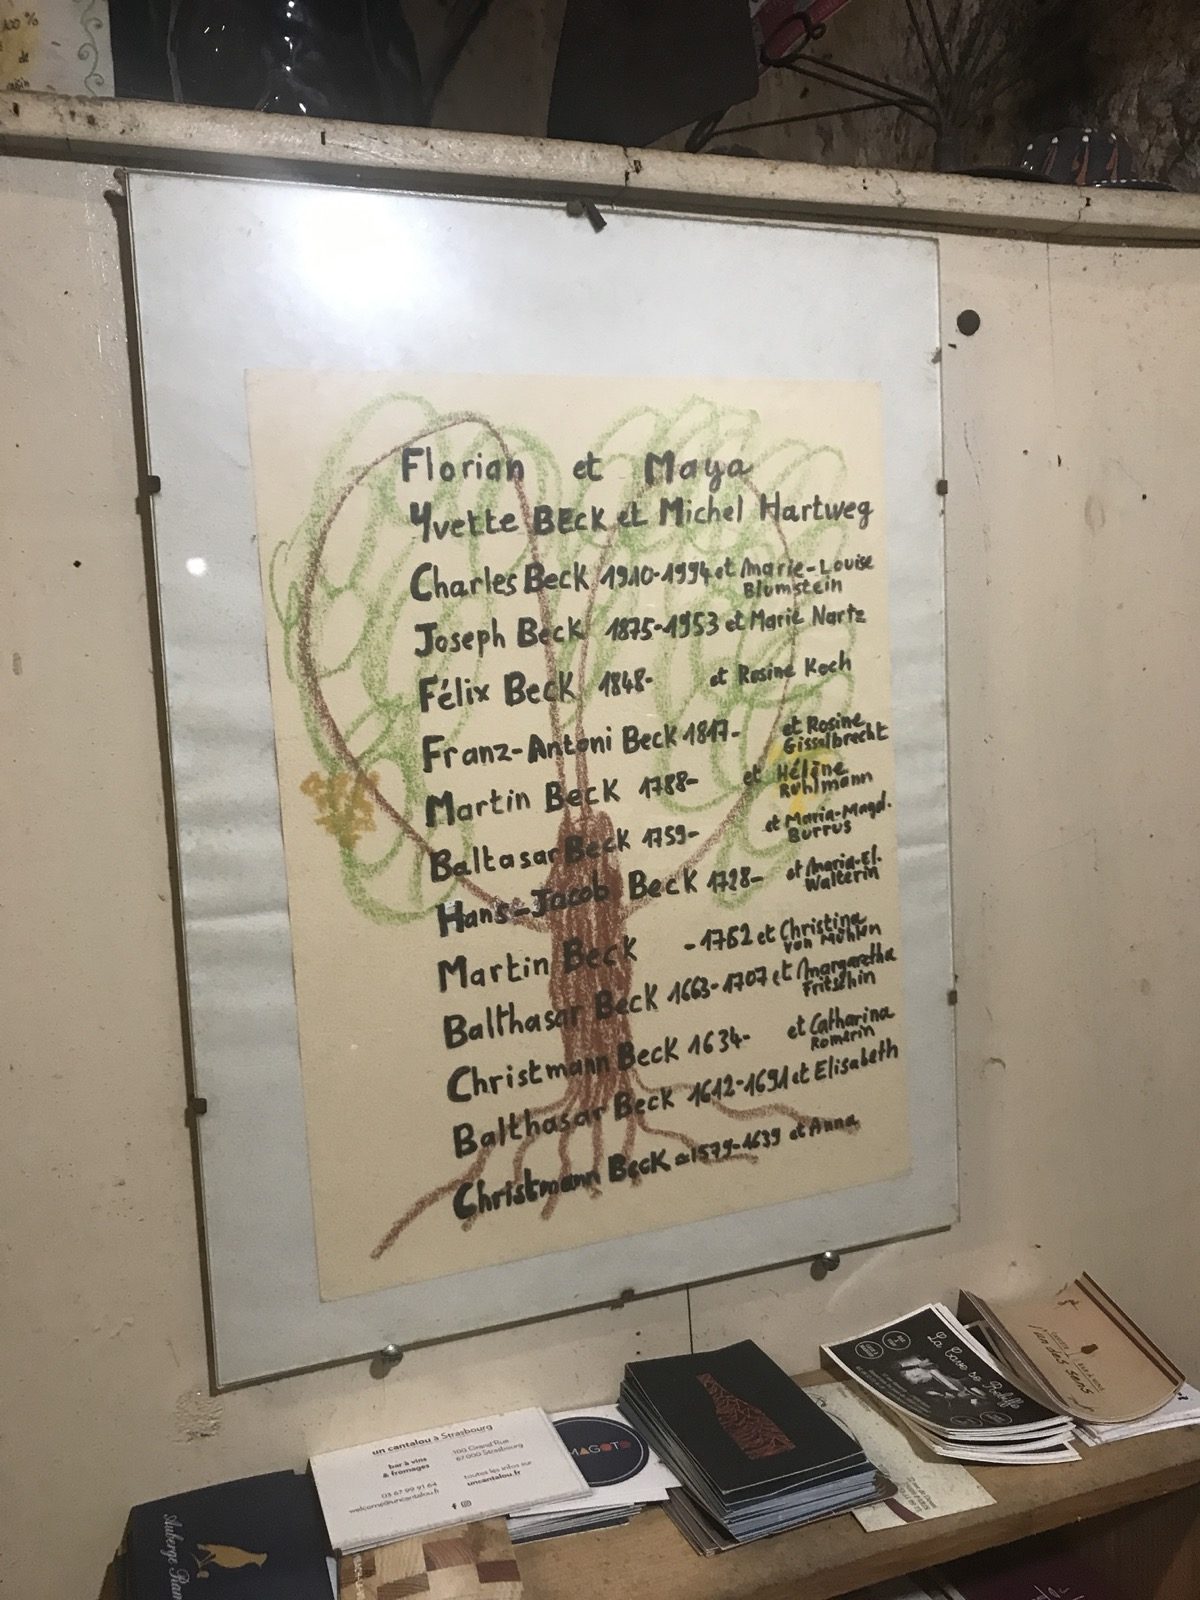 100 %
Florian et Maya
Yvette BECK et Michel Hartweg
Charles Beck 1910-1994 et Marie-Louise
Blumstein
Joseph Beck 1875-1953 et Marie Nartz
Félix Beck 1848- et Rosine Koch
Franz-Antoni Beck 1817- et Rosine
Gisselbrecht
Martin Beck 1788- et Hélène
Ruhlmann
Baltasar Beck 1759- et Maria-Magd.
Burrus
Hans-Jacob Beck 1728- et Maria-El.
Walterin
Martin Beck -1762 et Christina
von Mühlen
Balthasar Beck 1663-1707 et Margaretha
Fritschin
Christmann Beck 1634- et Catharina
Romerin
Balthasar Beck 1612-1691 et Elisabeth
Christmann Beck ≃1579-1639 et Anna
un cantalou à Strasbourg
bar à vins
& fromages
100 Grand Rue
67000 Strasbourg
03 67 99 91 64
welcome@uncantalou.fr
toutes les infos sur
uncantalou.fr
MAGOTO
Auberge Ram
l'un des sens